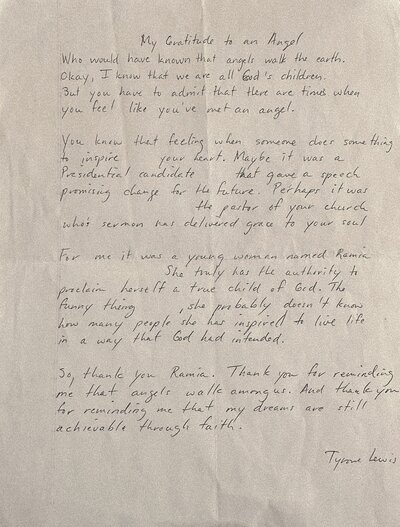 My Gratitude to an Angel
Who would have known that angels walk the earth.
Okay, I know that we are all God's children.
But you have to admit that there are times when
you feel like you've met an angel.
You know that feeling when someone does something
to inspire your heart. Maybe it was a
Presidential candidate that gave a speech
promising change for the future. Perhaps it was
the pastor of your church
who's sermon has delivered grace to your soul
For me it was a young woman named Ramia
She truly has the authority to
proclaim herself a true child of God. The
funny thing , she probably doesn't know
how many people she has inspired to live life
in a way that God had intended.
So, thank you Ramia. Thank you for reminding
me that angels walk among us. And thank you
for reminding me that my dreams are still
achievable through faith.
Tyrone Lewis